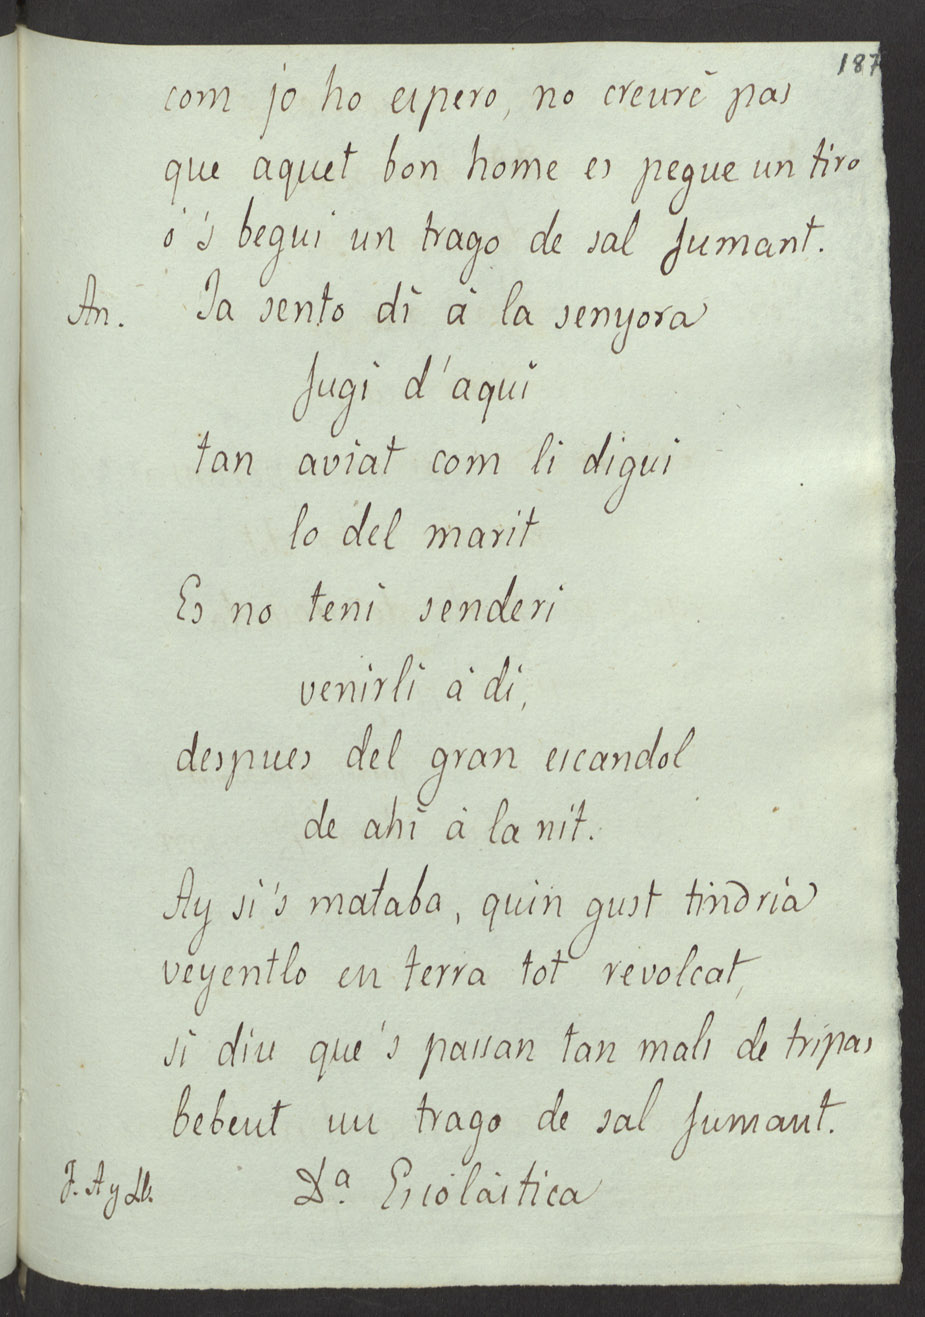 187
com jo ho espero, no creuré pas
que aquet bon home es pegue un tiro
ó 's begui un trago de sal fumant.
An. Ja sento dí à la senyora
fugí d'aquí
tan aviat com li digui
lo del marit
Es no tení senderi
venirli à dí,
despues del gran escandol
de ahí à la nit.
Ay si 's mataba, quin gust tindría
veyentlo en terra tot revolcat,
si diu que 's passan tan mals de tripas
bebent un trago de sal fumant.
F. A y Ll. Dª. Escolàstica